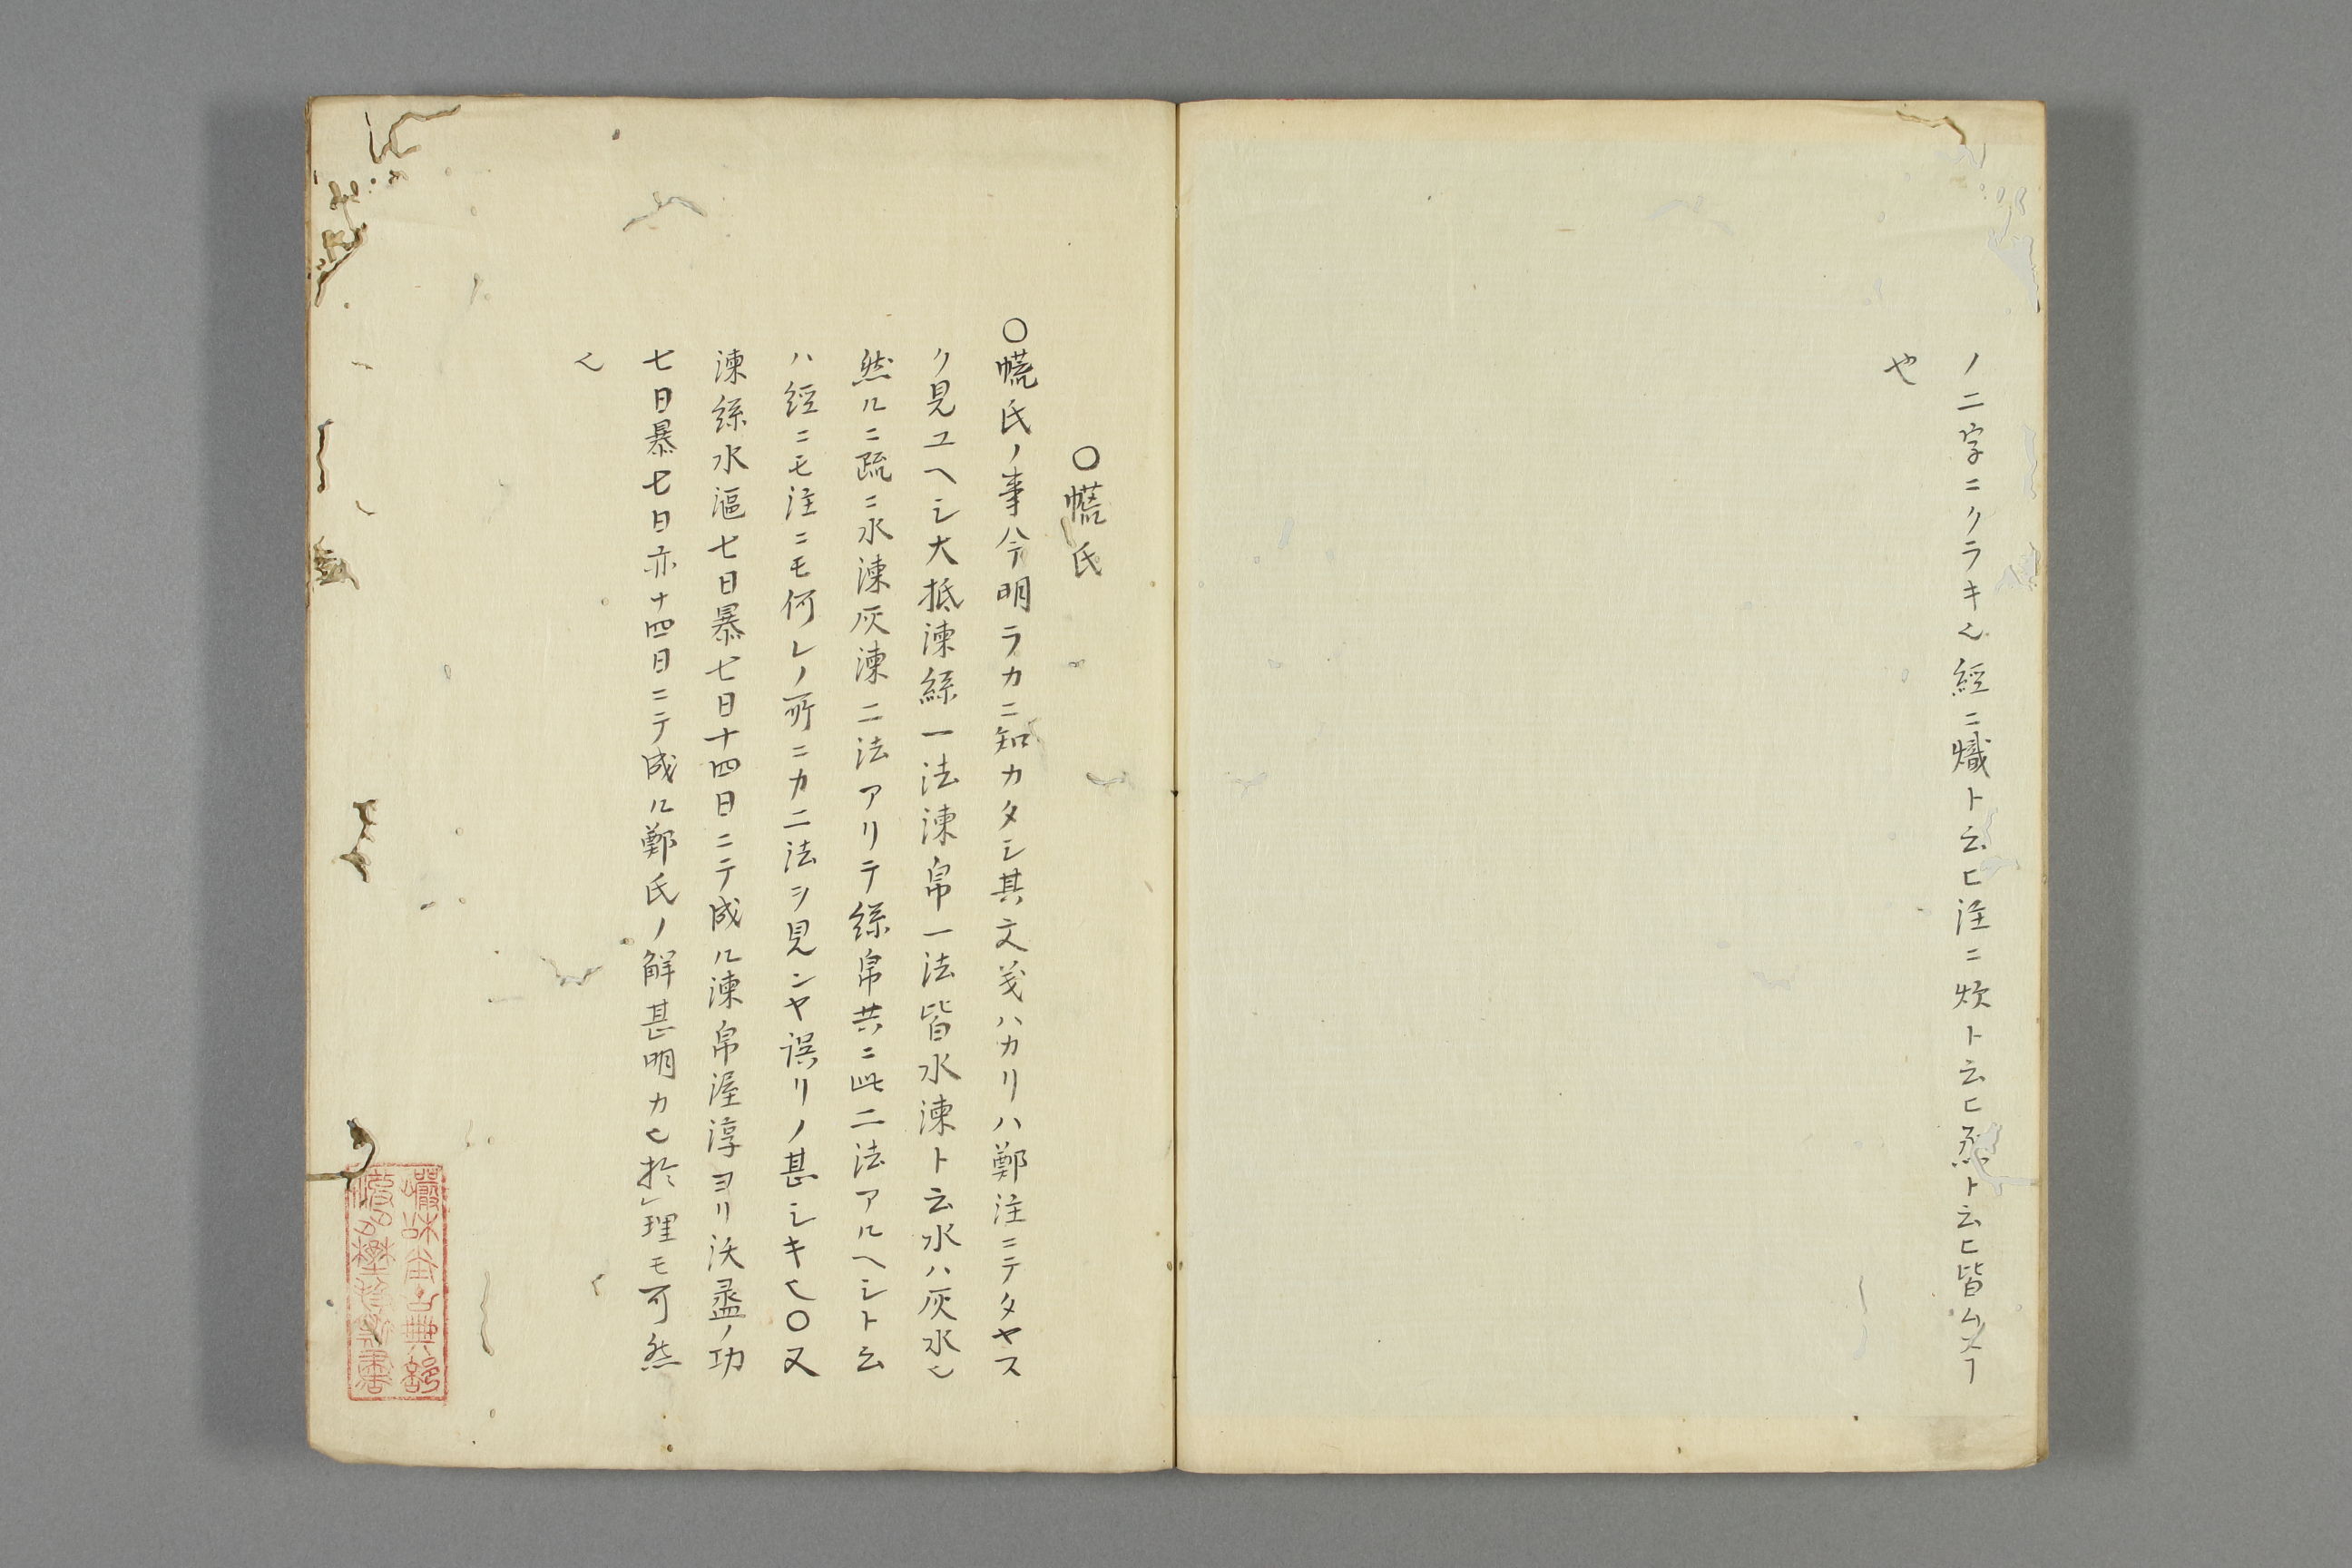 ノ二字ニクラキ也經ニ熾ト云ヒ注ニ炊ト云ヒ烝ト云ヒ皆ムス
也
〇㡆氏
〇㡆氏ノ事今明ラカニ知カタシ其文義ハカリハ鄭注ニテタヤス
ク見ユヘシ大抵湅絲一法湅帛一法皆水湅ト云水ハ灰水也
然ルニ疏ニ水湅灰湅二法アリテ絲帛共ニ此二法アルヘシト云
ハ經ニモ注ニモ何レノ所ニカ二法ヲ見ンヤ誤リノ甚シキ也〇又
湅絲水漚七日暴七日十四日ニテ成ル湅帛渥淳ヨリ沃盝ノ功
七日暴七日亦十四日ニテ成ル鄭氏ノ解甚明カ也於理モ可然
也